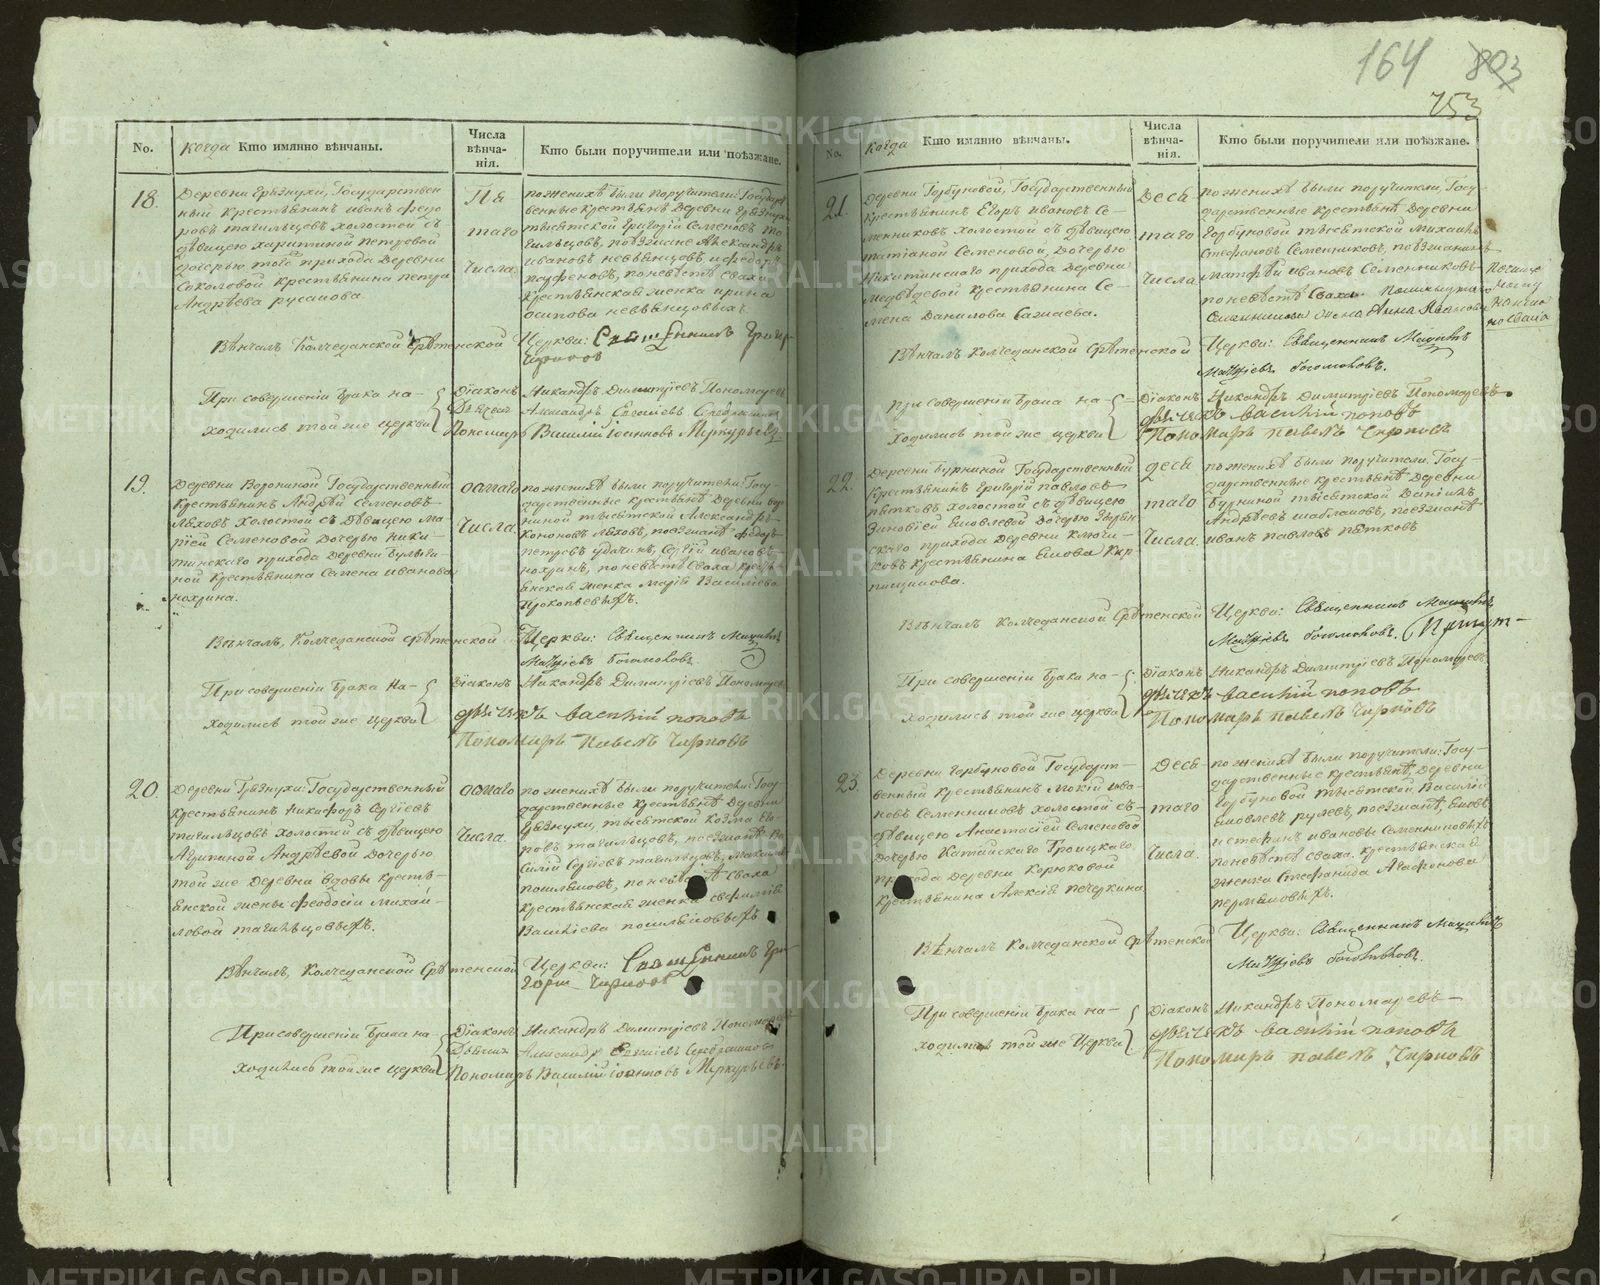 164 803
753
No.
когда Кто имянно вѣнчаны.
Числа вѣнча-нія.
Кто были поручители или поѣзжане.
18.
Деревни Грязнухи, Государствен
ный крестьянинъ Иванъ Федо
ровъ Тагильцовъ холостой съ
дѣвицею Харитиной Петровой
дочерью того прихода Деревни
Соколовой крестьянина Петра
Андрѣева Русанова.
Пя
таго
Числа.
по женихѣ были поручители: Государ
венные крестьянѣ Деревни Грязнухи
тысятской Григорій Семеновъ Та
гильцовъ, поѣзжане Александръ
Ивановъ Невьянцовъ, и Федоръ
Парфеновъ, по невѣстѣ сваха
крестьянская женка Ирина
Осипова Невьянцовыхъ
Вѣнчалъ Колчеданской Срѣтенской Церкви: Священникъ Григор
Чирковъ
При совершеніи брака на-
ходились той же церкви
Діаконъ Никандръ Димитріевъ Пономаревъ
Дьячекъ Александръ Евгеніевъ Серебрениковъ
Пономарь Василій Іоанновъ Меркурьевъ
19.
Деревни Ворониной Государственный
крестьянинъ Андрей Семеновъ
Ляховъ холостой съ дѣвицею Ма
ріей Семеновой дочерью Ники-
тинскаго прихода Деревни
ной крестьянина Семена Иванова
Нохрина.
осмаго
Числа.
по женихѣ были поручители: Госу-
дарственные крестьянѣ Деревни Воро
ниной тысятской Александръ
Кононовъ Ляховъ, поезжанѣ Федоръ
Петровъ Удачинъ, Сергій Ивановъ
Нохринъ, по невѣстѣ сваха кресть
янская женка Марія Василіева
Прокопьевыхъ.
Вѣнчалъ, Колчеданской Срѣтенской Церкви: Священникъ Михаилъ
Матѳіевъ Богомоловъ.
При совершеніи брака на-
ходились той же церкви
Діаконъ Никандръ Димитріевъ Пономаревъ
дьячекъ Василій Поповъ
Пономарь Павелъ Чирковъ
20.
Деревни Грязнухи Государственный
крестьянинъ Никифоръ Сергіевъ
Тагильцовъ холостой съ дѣвицею
Агрипиной Андрѣевой дочерью
той же Деревни вдовы кресть-
янской жены Феодосіи Михай-
ловой Тагильцовыхъ.
осмаго
Числа.
по женихѣ были поручители: Госу-
дарственные крестьянѣ Деревни
Грязнухи, тысятской Козма Его
ровъ Тагильцовъ, поезжанѣ Ва
силій Сергіевъ Тагильцовъ, Максимъ
по невѣстѣ сваха
крестьянская женка Евфимія
Василіева
Вѣнчалъ, Колчеданской Срѣтенской Церкви: Священникъ Гри-
горій Чирковъ
При совершеніи брака на
ходились той же церкви
Діаконъ Никандръ Димитріевъ Пономаревъ
Дьячекъ Александръ Евгеніевъ Серебрениковъ
Пономарь Василій Іоанновъ Меркурьевъ.
No.
когда Кто имянно вѣнчаны.
Числа вѣнча-нія.
Кто были поручители или поѣзжане.
21.
Деревни Горбуновой, Государственный
крестьянинъ Егоръ Ивановъ Се-
менниковъ холостой съ дѣвицею
Татіаной Семеновой, дочерью
Никитинскаго прихода Деревни
Медвѣдевой крестьянина Се-
мена Данилова Сажаева.
Деся
таго
Числа
по женихѣ были поручители, Госу-
дарственные крестьянѣ Деревни
Горбуновой тысятской Михаилъ
Стефановъ Семенниковъ, поѣзжанинъ
Матфѣй Ивановъ Семенниковъ
по невѣстѣ Сваха
жена Анна Иванова
Вѣнчалъ Колчеданской Срѣтенской Церкви: Священникъ Михаилъ
Матѳіевъ Богомоловъ.
При совершеніи брака на-
ходились той же церкви
Діаконъ Никандръ Димитріевъ Пономаревъ
дьячекъ Василій Поповъ
Пономарь Павелъ Чирковъ
22.
Деревни Бурниной Государственный
крестьянинъ Григорій Павловъ
Пятковъ холостой съ дѣвицею
Зиновіей Яковлевой дочерью Зырян
скаго прихода Деревни Ключи-
ковъ крестьянина Якова Кир
пищикова.
деся
таго
Числа.
по женихѣ были поручители: Госу-
дарственные крестьянѣ Деревни
Бурниной тысятской Даніилъ
Андрѣевъ Шаблаковъ, поезжанѣ
Иванъ Павловъ Пятковъ
Вѣнчалъ Колчеданской Срѣтенской Церкви: Священникъ Михаилъ
Матѳіевъ Богомоловъ.
При совершеніи брака на-
ходились той же церкви
Діаконъ Никандръ Димитріевъ Пономаревъ
дьячекъ Василій Поповъ
Пономарь Павелъ Чирковъ
23.
Деревни Горбуновой Государст-
венный крестьянинъ Мокій Ива-
новъ Семенниковъ холостой съ
дѣвицею Анастасіей Семеновой
дочерью Катайскаго Троицкаго
прихода Деревни Корюковой
крестьянина Алексія Печеркина
Деся
таго
Числа.
по женихѣ были поручители: Госу-
дарственные крестьянѣ, Деревни
Горбуновой тысятской Василій
Яковлевъ Рулевъ, поезжанѣ, Яковъ
и Стефанъ Ивановы Семенниковыхъ
по невѣстѣ сваха крестьянская
женка Стефанида Агафонова
Пермяковыхъ.
Вѣнчалъ Колчеданской Срѣтенской Церкви: Священникъ Михаилъ
Матѳіевъ Богомоловъ.
При совершеніи брака на-
ходились той же Церкви
Діаконъ Никандръ Пономаревъ
дьячекъ Василій Поповъ
Пономарь Павелъ Чирковъ
METRIKI.GASO-URAL.RU